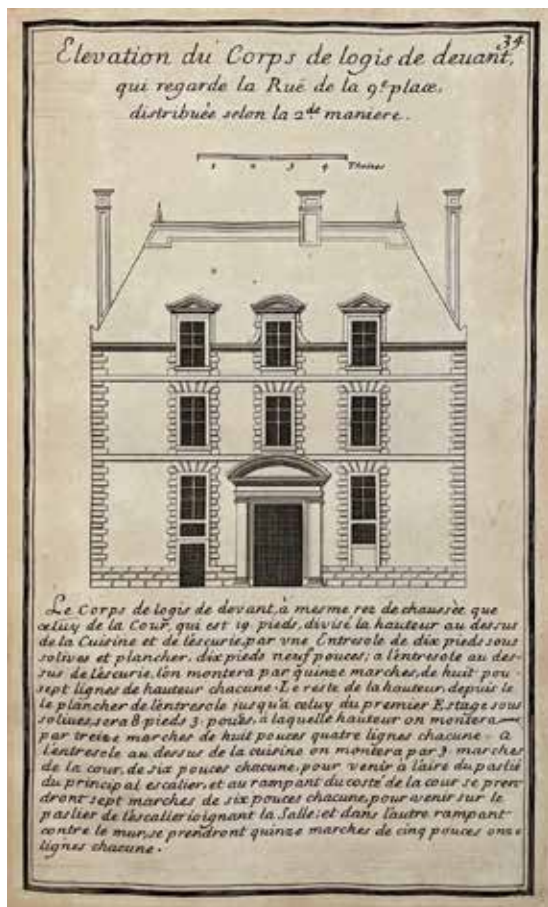 34
Elevation du Corps de logis de deuant,
qui regarde la Ruë de la 9.e place,
distribuée selon la 2.de maniere.
1 2 3 4 Thoises
Le Corps de logis de devant, à mesme rez de chaussée que
celuy de la Cour, qui est 19 pieds, divisé la hauteur au dessus
de la Cuisine et de l'escurie, par vne Entresole de dix pieds sous
solives et plancher, dix pieds neuf pouces; a l'entresole au des-
sus de l'escurie, l'on montera par quinze marches, de huit pou-
sept lignes de hauteur chacune. Le reste de la hauteur, depuis le
le plancher de l'entresole jusqu'a celuy du premier Estage sous
soliues, sera 8 pieds 3. pouces, à laquelle hauteur on montera
par treize marches de huit pouces quatre lignes chacune. A
l'entresole au dessus de la cuisine on montera par 9. marches
de la cour, de six pouces chacune, pour venir à l'aire du pastié
du principal escalier, et au rampant du costé de la cour se pren
dront sept marches de six pouces chacune, pour venir sur le
paslier de l'escalier ioignant la Salle; et dans l'autre rampant
contre le mur, se prendront quinze marches de cinq pouces onze
lignes chacune.